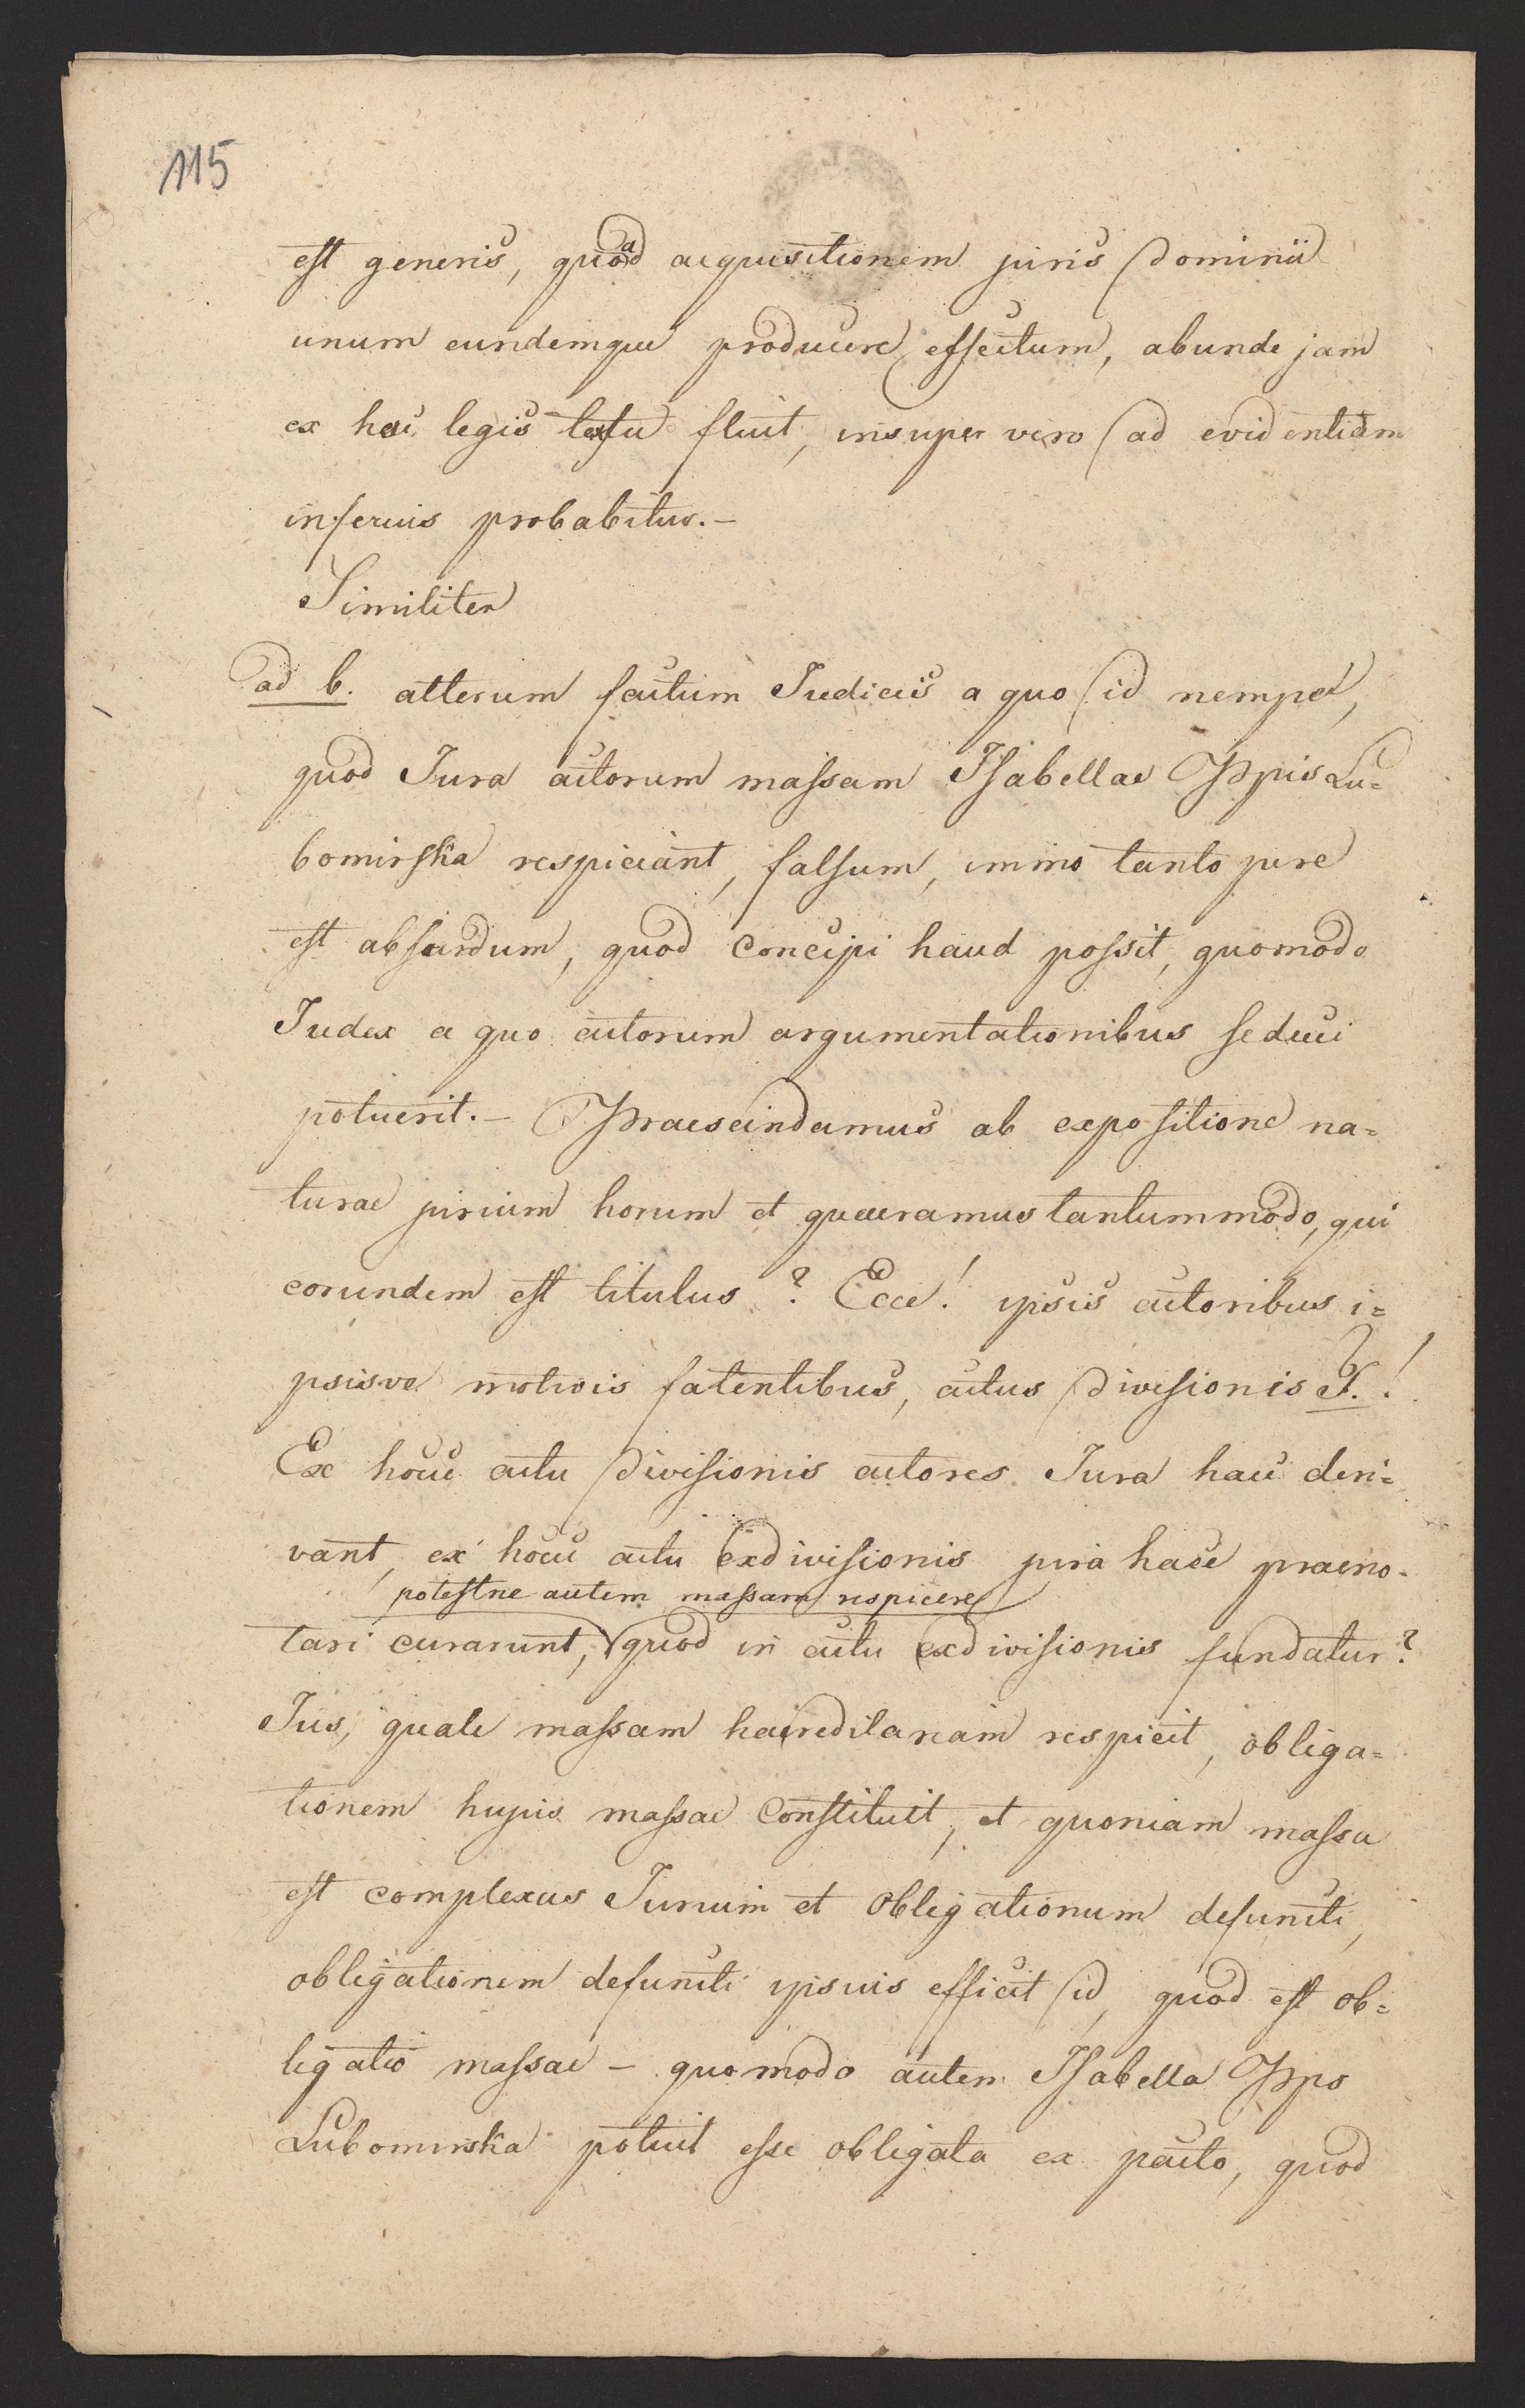 115
est generis, quoad acquisitionem juris dominii
unum eundemque producere effectum, abunde jam
ex hac legis textu fluit, insuper vero ad evidentiam
inferius probabitur.-
Similiter
ad b. alterum factum Judicis a quo id nempe,
quod Jura actorum massam Isabellae Ppis Lu=
bomirska respiciant, falsum, immo tanto jure
est absurdum, quod concipi haud possit, quomodo
Judex a quo actorum argumentationibus seduci
potuerit.- Praescindamus ab expositione na=
turae jurium horum et quaeramus tantummodo, qui
eorundem est titulus? Ecce! ipsis actoribus i=
psisve motivis fatentibus, actus divisionis!
Ex hocce actu divisionis actores Jura haec deri=
vant, ex hocce actu exdivisionis jura haece praeno-
potestne autem massam respicere
tari curarunt, quod in actu exdivisionis fundatur?
Jus, quale massam haereditariam respicit, obliga=
tionem hujus massae constituit, et quoniam massa
est complexus Jurium et obligationum defuncti,
obligationem defuncti ipsius efficit id, quod est ob=
ligatio massae - quomodo autem Isabella Pps
Lubomirska potuit esse obligata ex pacto, quod